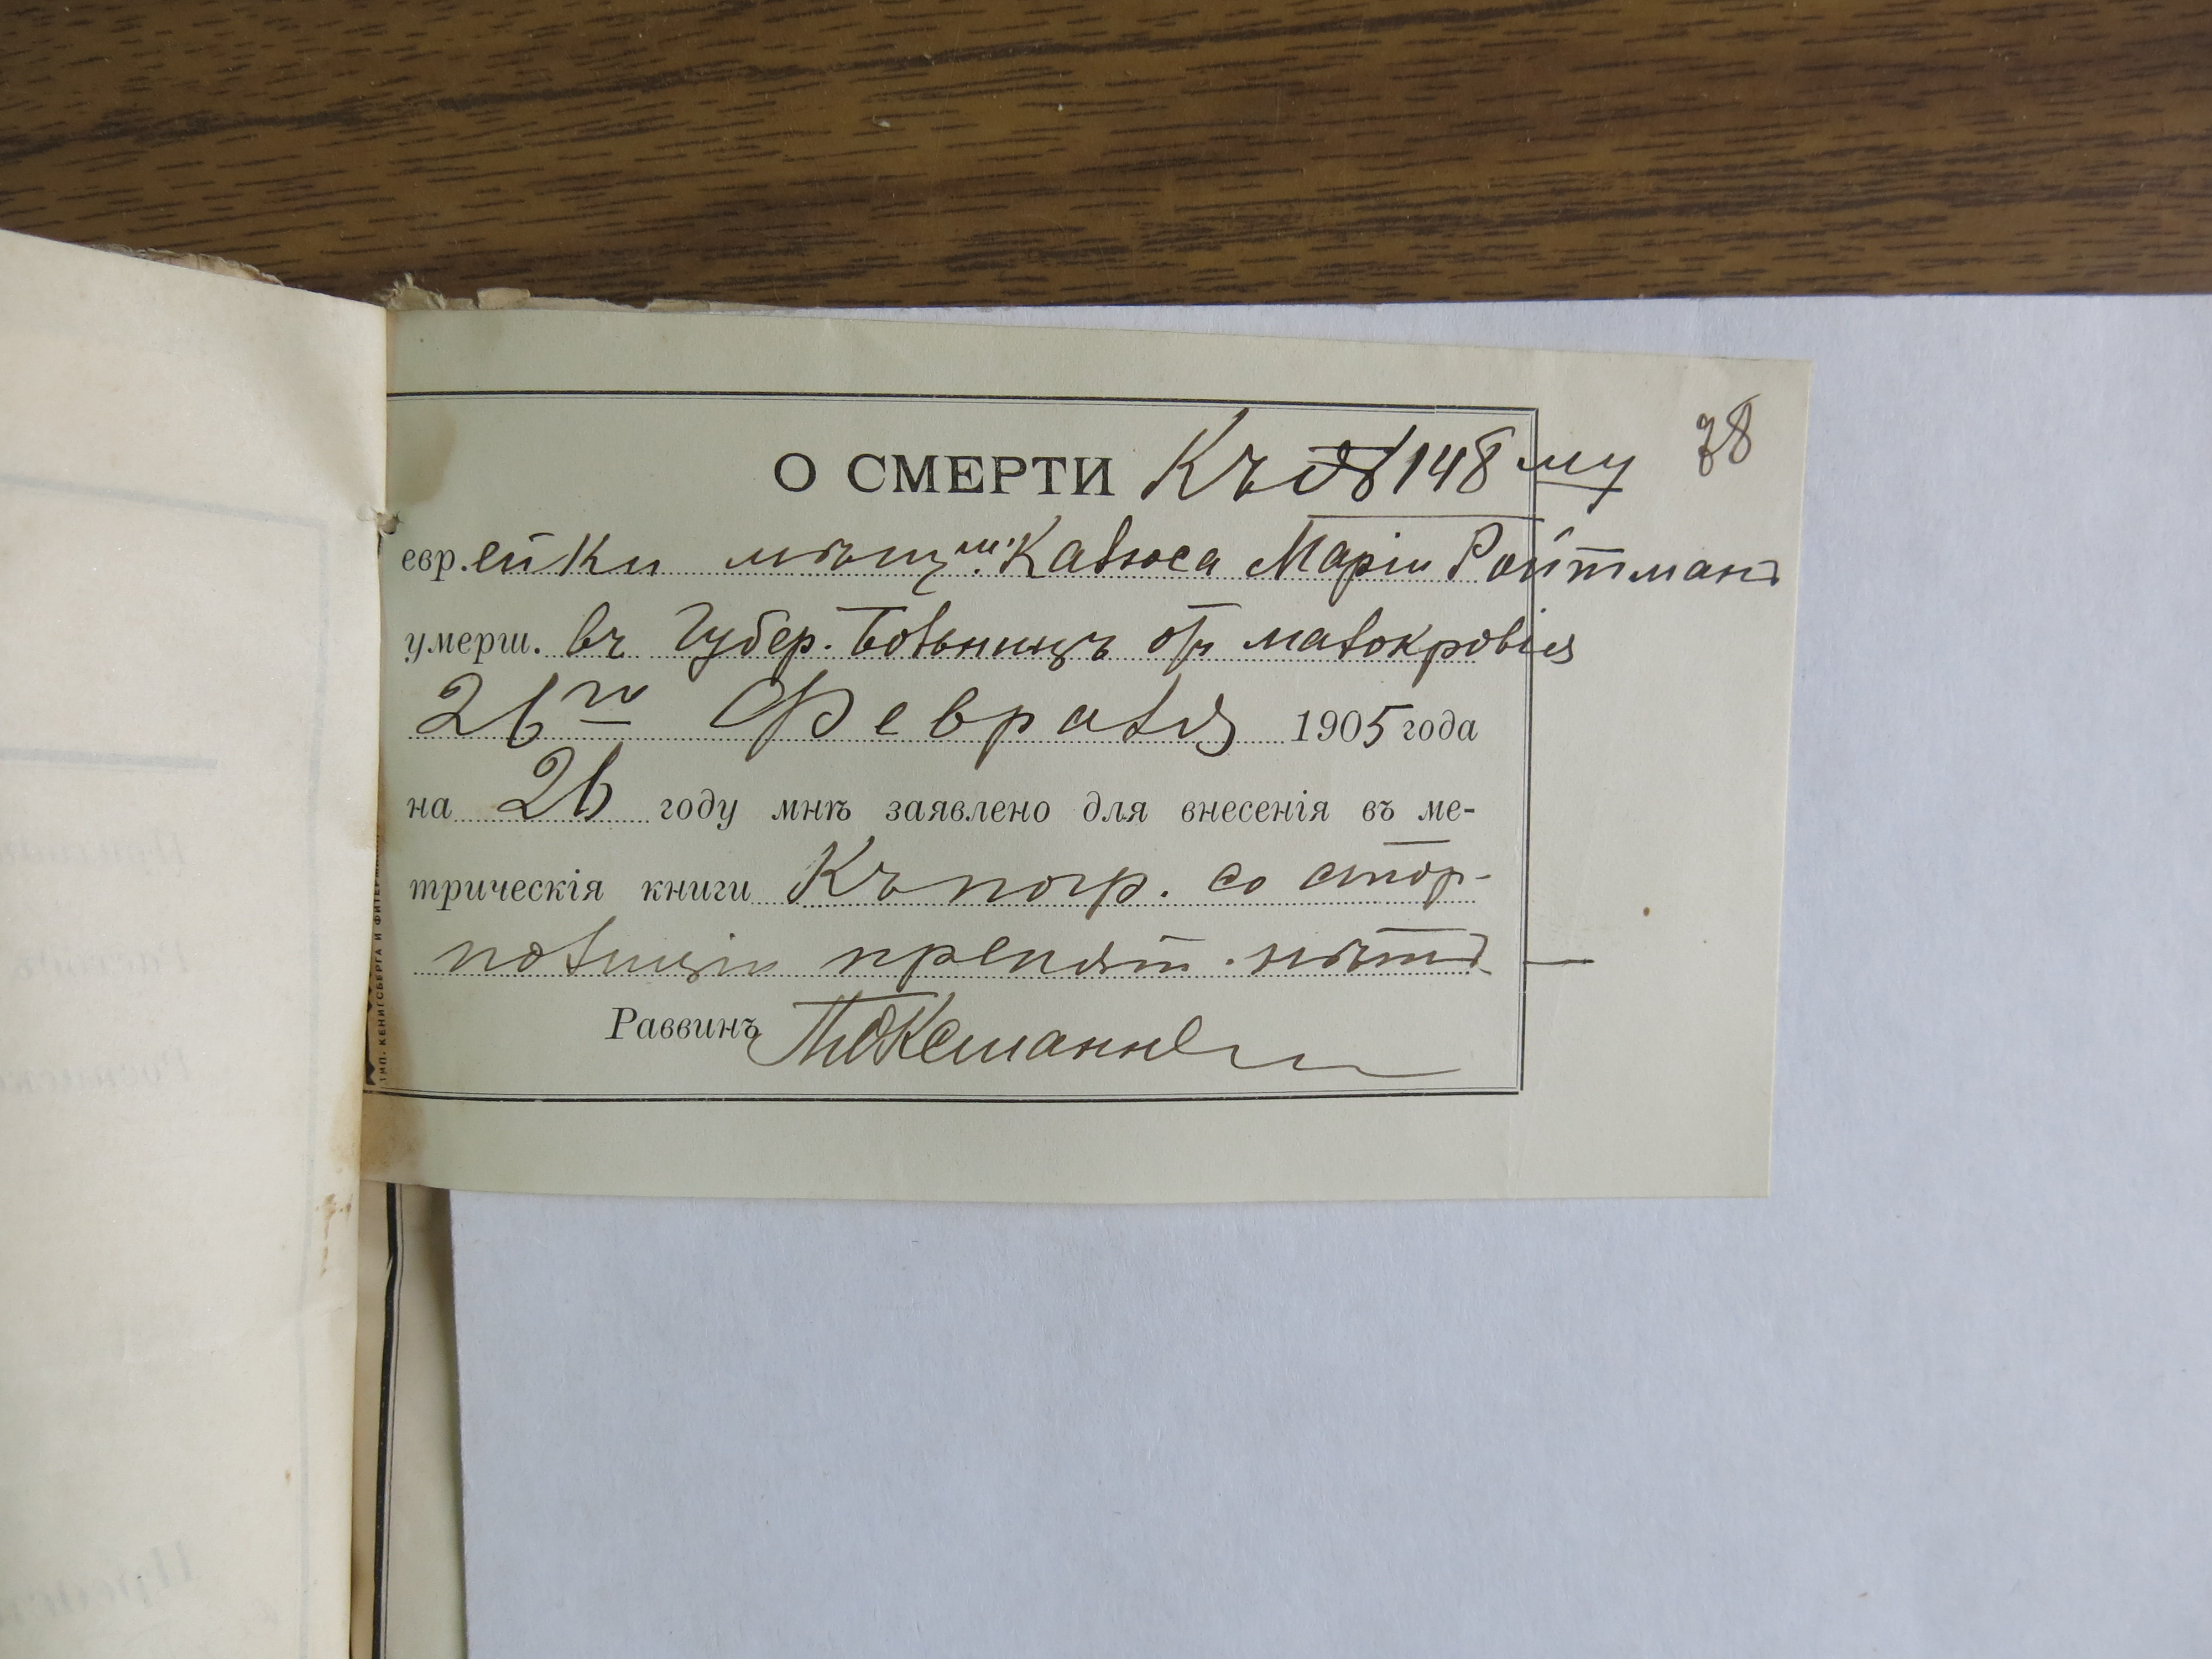 38
О СМЕРТИ Къ № 148 му
евр.ейки мѣщ. м. Калюса Маріи Ройтманъ
умерш. въ Губер. Больницѣ отъ малокровія
26го Февраля 1905 года
на 26 году мнѣ заявлено для внесенія въ ме-
трическія книги Къ погр. со стор-
полиціи препят. нѣтъ
Раввинъ
ТИП. КЕНИГСБЕРГА И